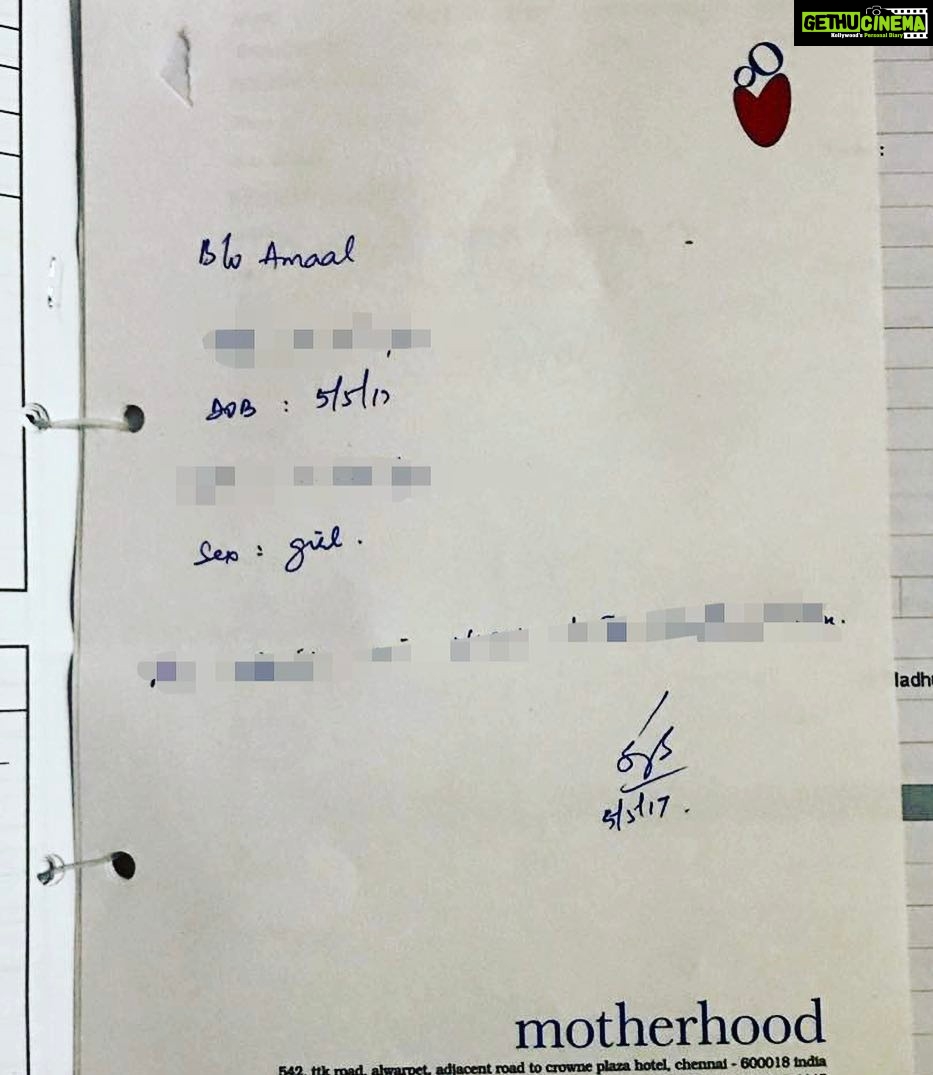 GETHU CINEMA
Kollywood's Personal Diary
:
B/o Amaal
DOB : 5/5/17
Sex : girl .
ladhu
5/5/17 .
motherhood
542, ttk road, alwarpet, adjacent road to crowne plaza hotel, chennai - 600018 india